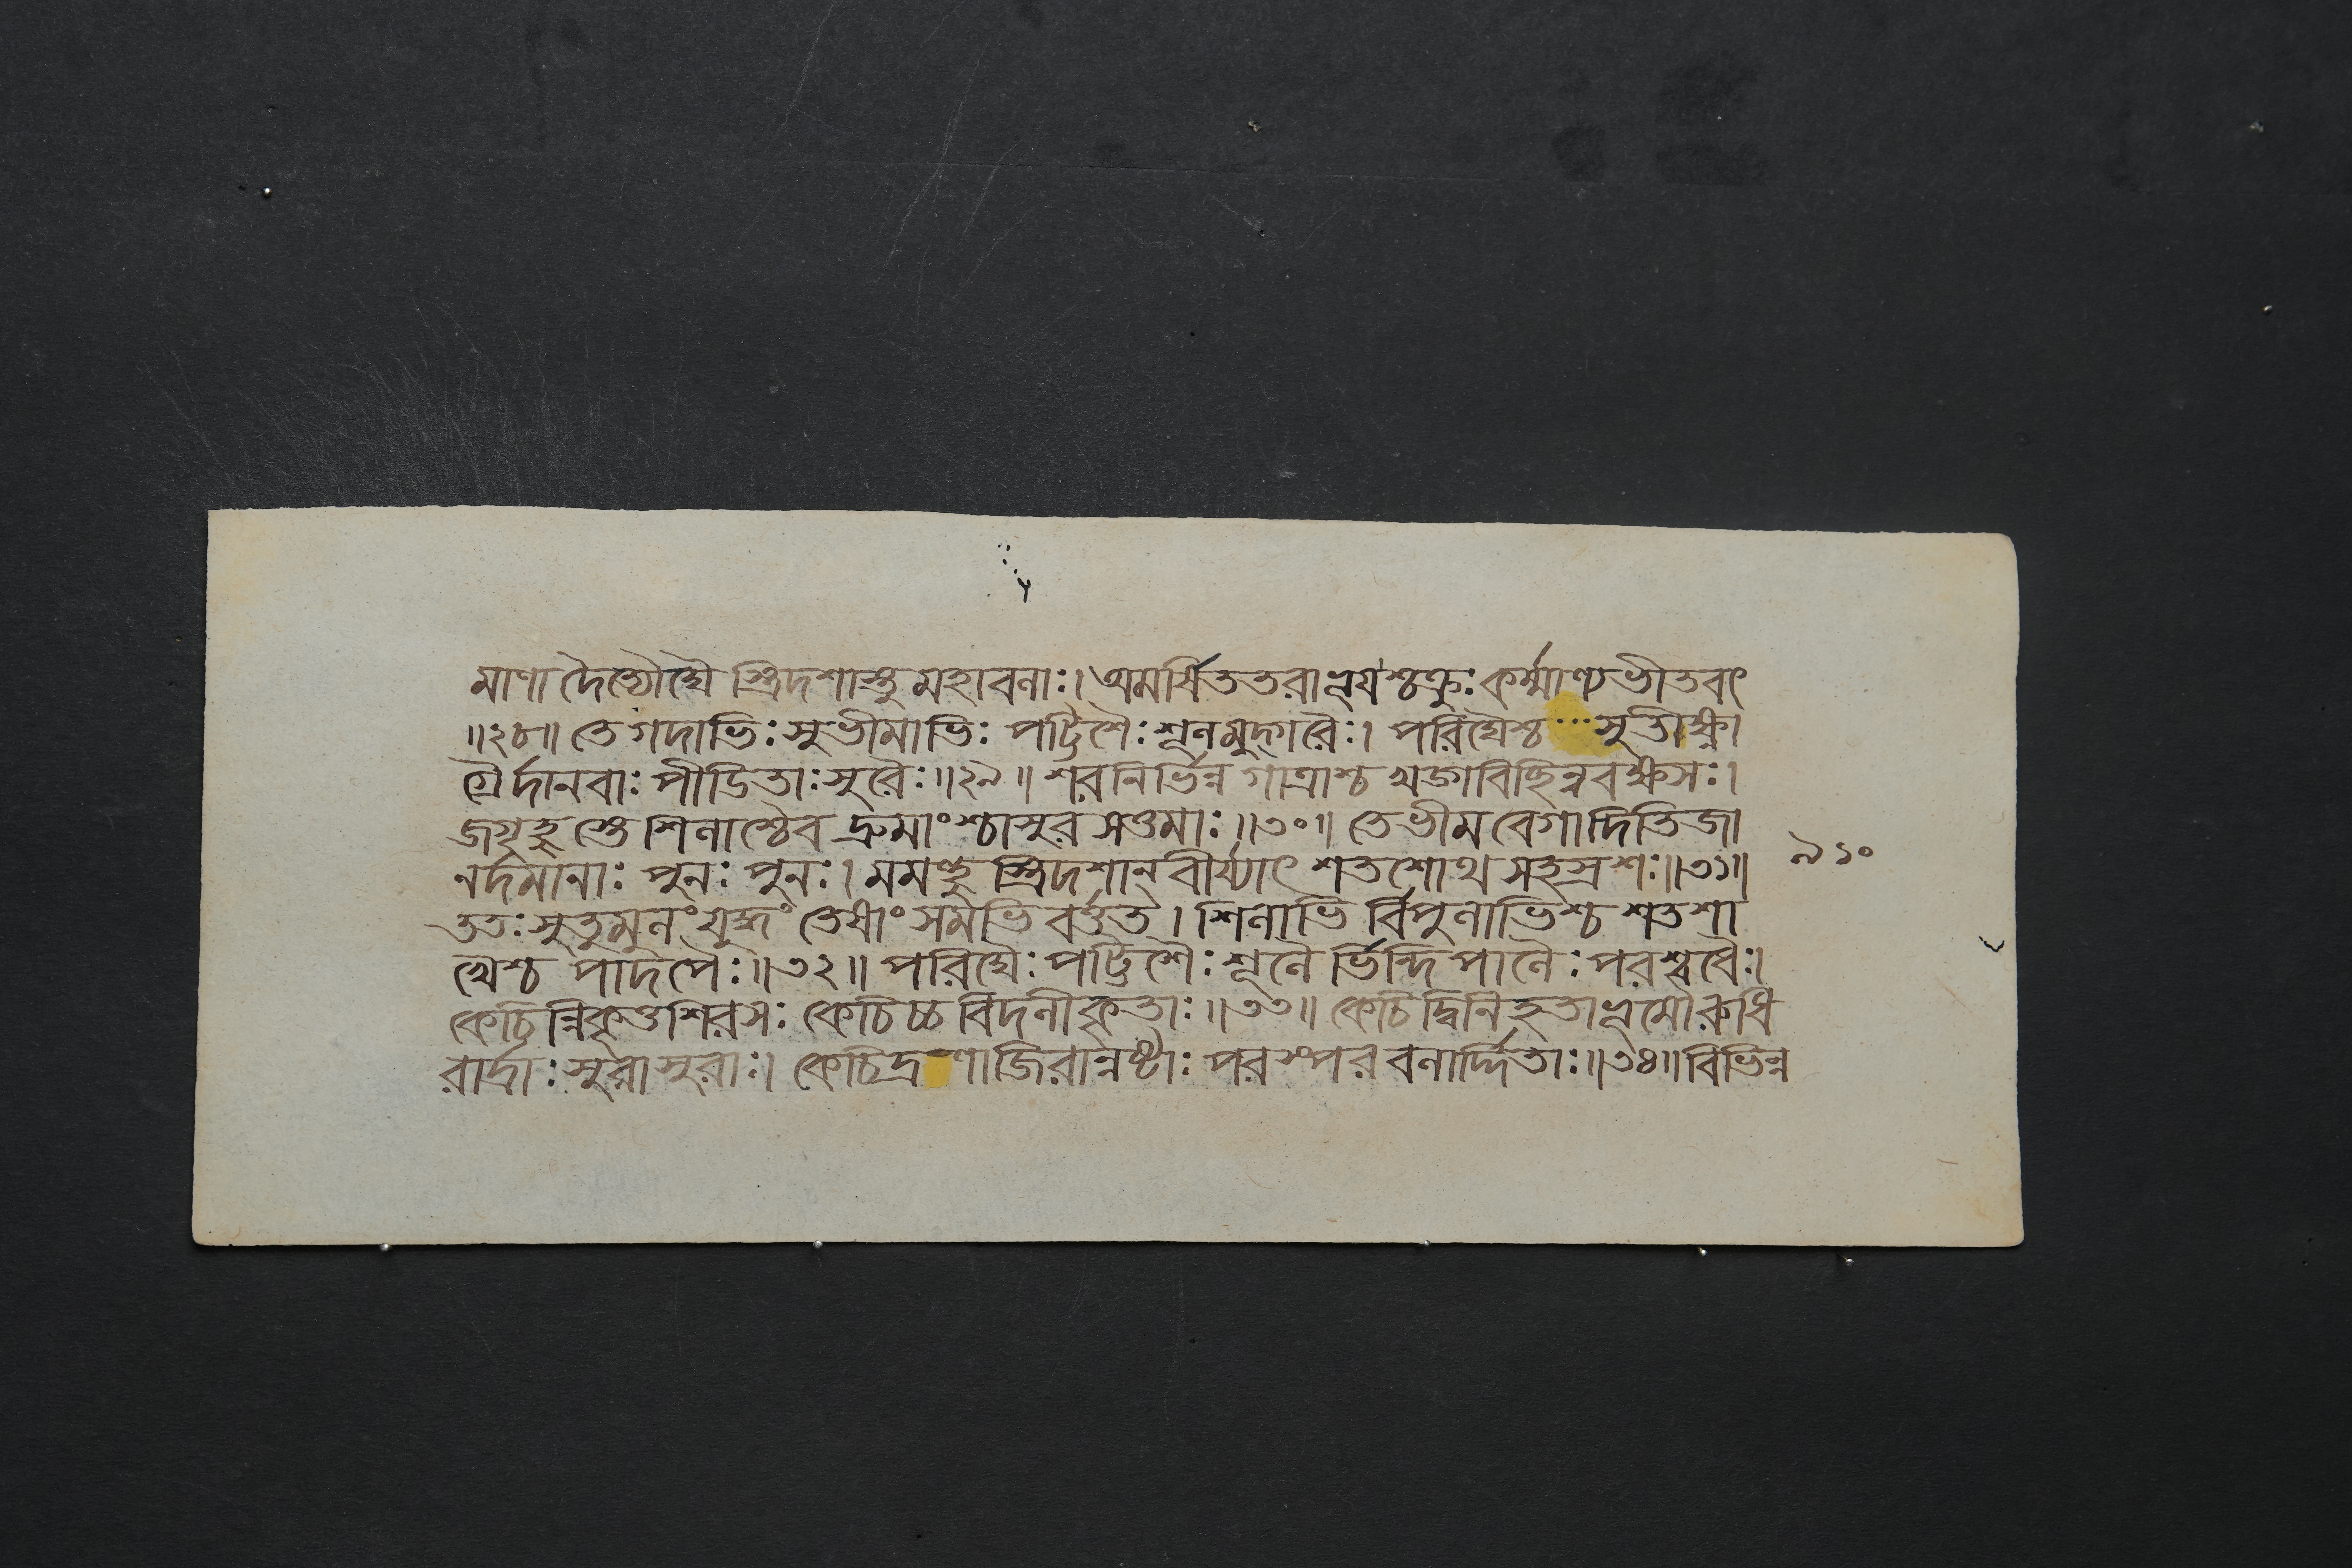 মাণা দৈত্যৌঘৈ স্ত্রিদশাস্তু মহাবলাঃ। অমর্ষিততরাভূয়শ্চক্রুঃ কর্ম্মাণ্যভীতবৎ
॥২৮॥ তে গদাভিঃ সুভীমাভিঃ পট্টিশৈঃ শূলমুদ্গরৈঃ। পরিঘৈশ্চ ··· সুতীক্ষ্ণা
গ্রৈর্দানবাঃ পীডিতাঃ সুরৈঃ॥২৯॥ শরনির্ভিন্ন গাত্রাশ্চ খড্গবিচ্ছিন্নবক্ষসঃ।
জগৃহু স্তে শিলাশ্চৈব দ্রুমাংশ্চাসুর সত্তমাঃ॥৩০॥ তে ভীম বেগাদিতিজা
নর্দমানাঃ পুনঃ পুনঃ। মমন্থু স্ত্রিদশান্ বীর্য্যাৎ শতশোথ সহস্রশঃ॥৩১॥
ততঃ সুতুমুলং যুদ্ধং তেষাং সমভি বর্ত্তত। শিলাভি র্বিপুলাভিশ্চ শতশা
খেশ্চ পাদপৈঃ॥৩২॥ পরিঘৈঃ পট্টিশৈঃ শূলৈ র্ভিন্দিপালৈঃ পরশ্বধৈঃ।
কেচি ন্নিকৃত্তশিরসঃ কেচিচ্চ বিদলীকৃতাঃ॥৩৩॥ কেচিদ্বিনিহতাভূমৌ রুধি
রার্দ্রাঃ সুরাসুরাঃ। কেচিদ্র ণাজিরান্নষ্টাঃ পরস্পর বলার্দ্দিতাঃ॥৩৪॥ বিভিন্ন
৯১০